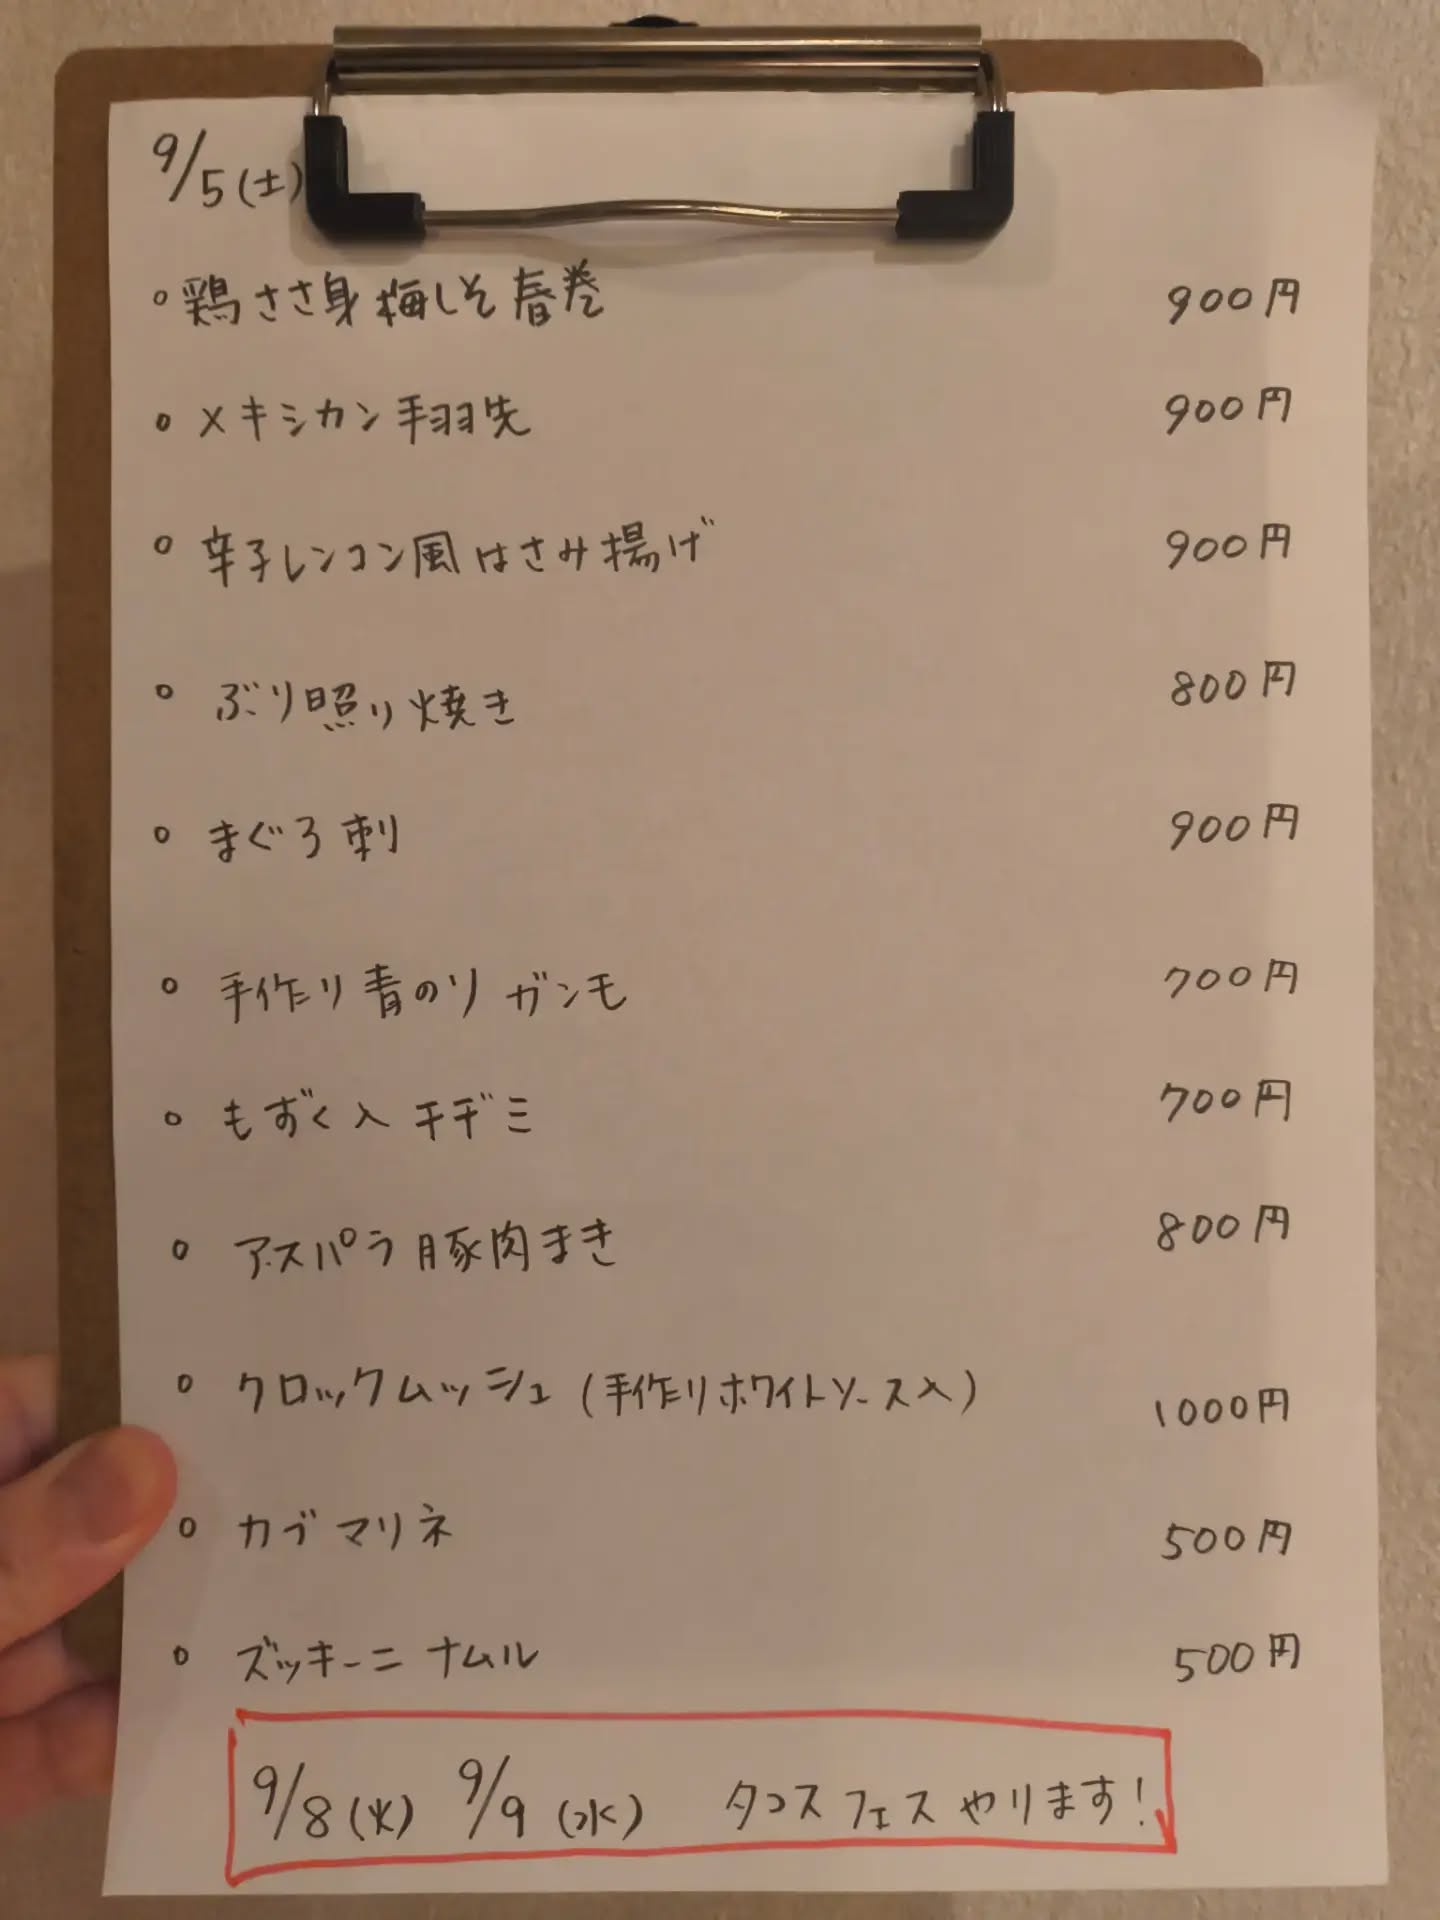 9/5(土)
○鶏ささ身梅しそ春巻 900円
○メキシカン手羽先 900円
○辛子レンコン風はさみ揚げ 900円
○ぶり照り焼き 800円
○まぐろ刺 900円
○手作り青のりガンモ 700円
○もずく入チヂミ 700円
○アスパラ豚肉まき 800円
○クロックムッシュ(手作りホワイトソース入) 1000円
○カブマリネ 500円
○ズッキーニナムル 500円
9/8(火) 9/9(水) タコスフェスやります!